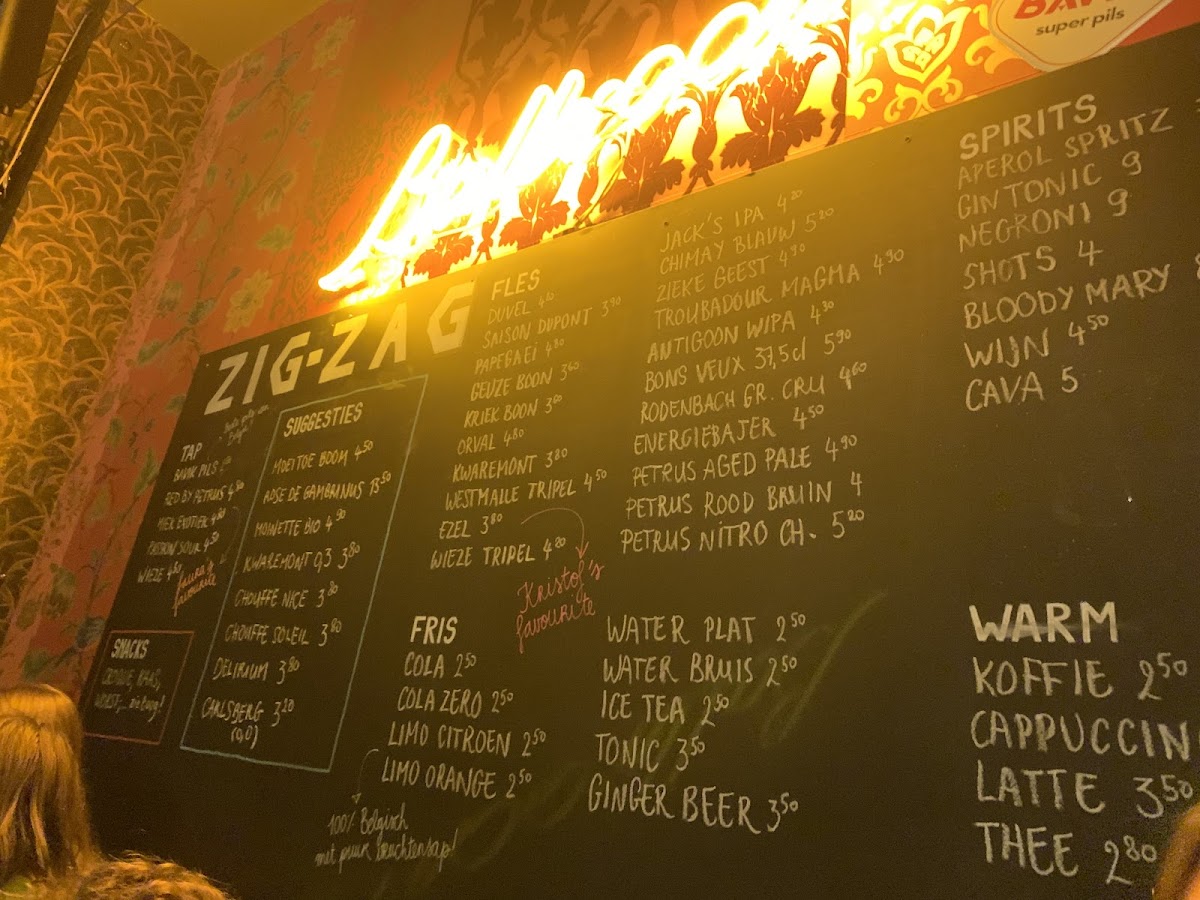 super pils
ZIG-ZAG
TAP
BAVIK PILS
RED BY PETRUS 450
WIEZE 4
Laura's
favourite
SNACKS
SUGGESTIES
MOEI TOE BOOM 4 50
ROSE DE GAMBRINUS 13 50
MOINETTE BIO 4 90
KWAREMONT 0,3 3 80
CHOUFFE NICE 3 80
CHOUFFE SOLEIL 3 80
DELIRIUM 3 80
CARLSBERG 3 20
(0,0)
FLES
DUVEL 4
SAISON DUPONT 3 90
PAPEGAEI 4 80
GEUZE BOON 3 60
KRIEK BOON 3 60
ORVAL 4 80
KWAREMONT 3 80
WESTMALLE TRIPEL 4 50
EZEL 3 80
WIEZE TRIPEL 4 20
Kristof's
favourite
JACK'S IPA 4 20
CHIMAY BLAUW 5 20
ZIEKE GEEST 4 90
TROUBADOUR MAGMA 4 90
ANTIGOON WIPA 4 30
BONS VEUX 37,5cl 5 90
RODENBACH GR. CRU 4 60
ENERGIEBAJER 4 50
PETRUS AGED PALE 4 90
PETRUS ROOD BRUIN 4
PETRUS NITRO CH. 5 20
SPIRITS
APEROL SPRITZ
GIN TONIC 9
NEGRONI 9
SHOTS 4
BLOODY MARY
WIJN 4 50
CAVA 5
FRIS
COLA 2 50
COLA ZERO 2 50
LIMO CITROEN 2 50
LIMO ORANGE 2 50
100% Belgisch
met puur vruchtensap!
WATER PLAT 2 50
WATER BRUIS 2 50
ICE TEA 2 50
TONIC 3 50
GINGER BEER 3 50
WARM
KOFFIE 2 50
CAPPUCCIN
LATTE 3 50
THEE 2 80